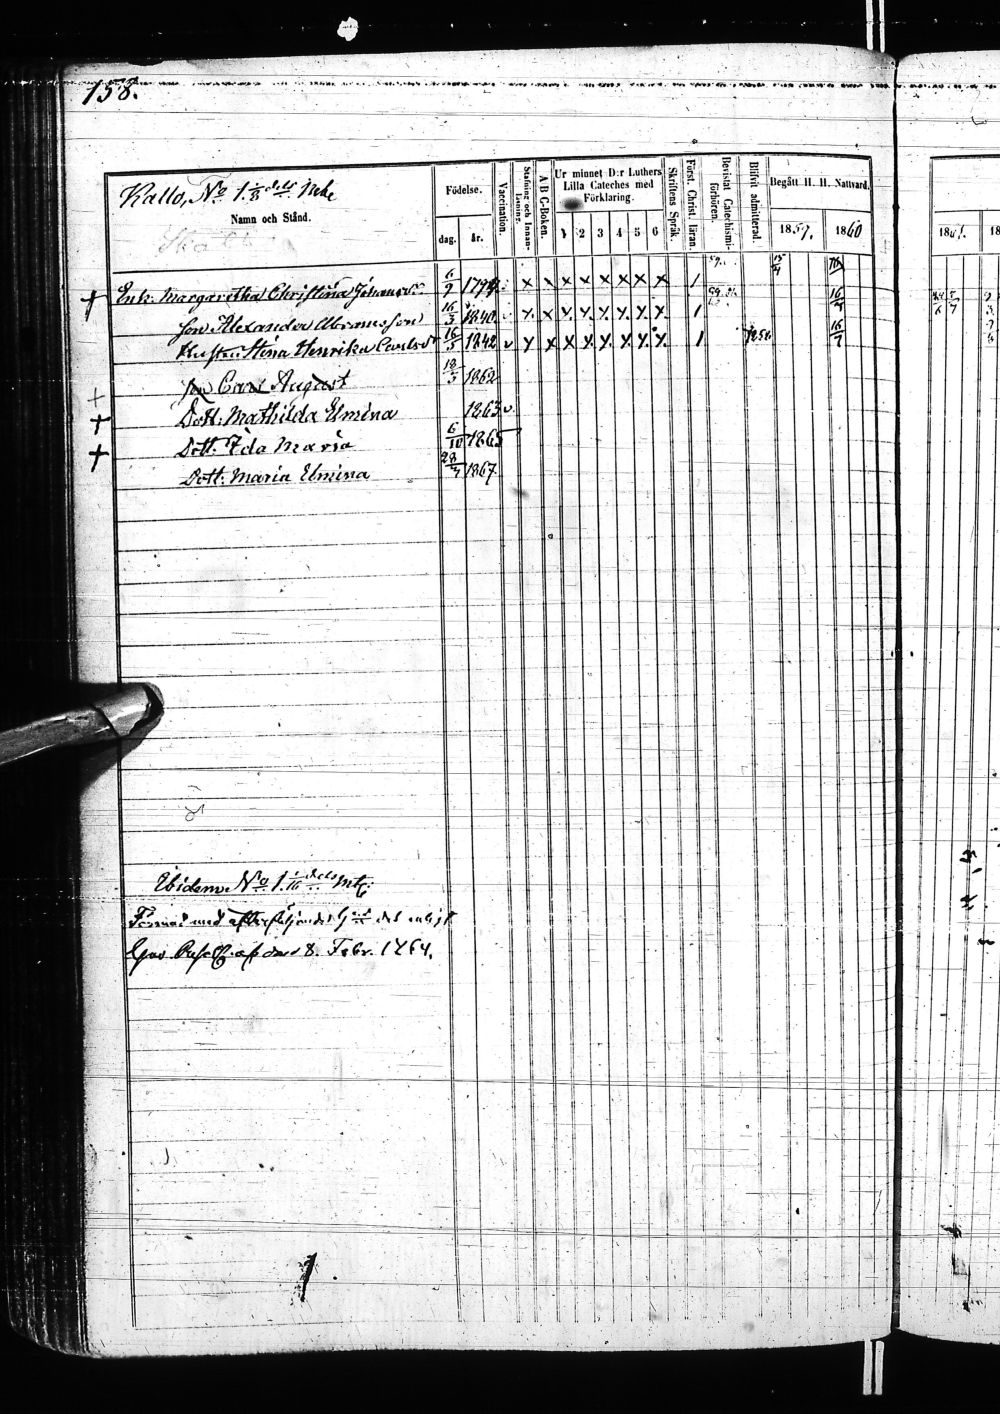 158.
Kallo, No 1. 1/8 dels Mtl
Namn och Stånd.
Födelse.
dag.
år.
Vaccination.
Stafning och Innan-Läsning.
A B C-Boken.
Ur minnet D:r Luthers
Lilla Cateches med
Förklaring.
1 2 3 4 5 6
Skriftens Språk.
Först. Christ. läran.
Bevistat Catechismi-förhören.
Blifvit admitterad.
Begått H. H. Nattvard.
1859.
1860
1861.
Enk. Margaretha Christina Johansdr 6/9 x x x x x x x x 1 15/4
Son Alexander Abramsson 16/3 1840 x x x x x x x x 1 16/7
Hustru Stina Henrika Carlsdr 16/5 1842 v x x x x x x x x 1 1858 16/7
Son Carl August 18/3 1862
Dott: Mathilda Elmina 1863 v
Dott. Ida Maria 6/10 1865
Dott: Maria Elmina 28/7 1867
Ibidem No 1. 1/16 dels Mtl:
med efterföljande det enligt
af den 8. Febr. 1864.